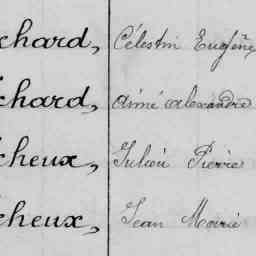 chard, Célestin Eugène
chard, Aimé Alexandre
cheux, Julien Pierre
cheux, Jean Marie